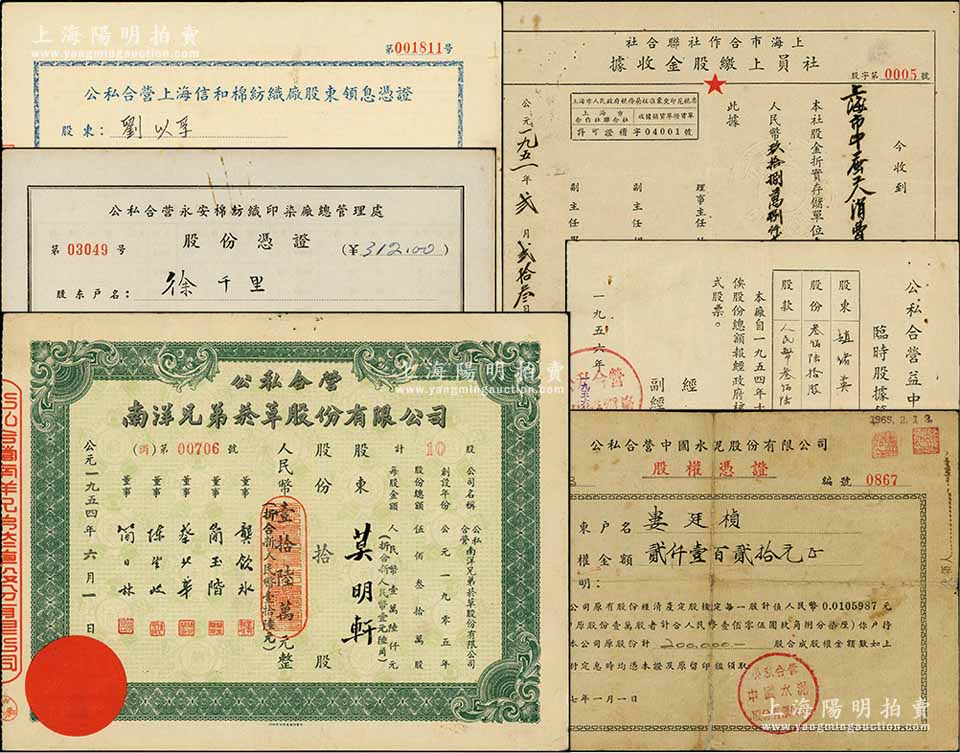 上海陽明拍賣
yangmingauction.com
第001811号
公私合營上海信和棉紡織廠股東領息憑證
股東：劉以孚
公私合營永安棉紡織印染廠總管理處
第 03049 号
股份憑證
(￥312.00)
股东戶名：徐千里
上海市合作社聯合社
社員上繳股金收據
股字第 0005 號
上海市人民政府稅務局核准彙交印花稅票
上海市合作社聯合社
許可證稽字04001號
今收到
本社股金折實存儲單位
此據
理事主任
副主任
副主任
公元一九五一年贰月贰拾叁日
公私合營益中
臨時股據
股東 趙
股份 叁佰陆拾股
股款 人民幣叁佰陆
本廠自一九五四年十
俟股份總額報經政府核
式股票。
一九五六年
經
副經
公私合營
南洋兄弟菸草股份有限公司
(丙)第 00706 號
計 10 股
公司名稱 公私合營南洋兄弟菸草股份有限公司
創設年份 公元一九零五年
股份總額 伍佰叁拾萬股
每股金額 人民幣壹萬陸仟元
(折合新人民幣壹元陸角)
股東 莫明軒
股份 拾 股
人民幣壹拾陸萬元整
(折合新人民幣壹拾陸元)
董事 龔飲冰
董事 簡玉階
董事
董事
董事 簡日林
公元一九五四年六月一日
1965.2.13.
公私合營中國水泥股份有限公司
股權憑證
編號 0867
東戶名 婁廷楨
權金額 貳仟壹百貳拾元正
明：
公司原有股份經清產定股核定每一股計值人民幣0.0105987元
股合成股權金額數如上
本公司原股份計 200,000.-
定息時均憑本證及原留印鑑領取
七年一月一日
公私合營
中國水泥
上海陽明拍賣
yangmingauction.com
上海陽明拍賣
yangmingauction.com